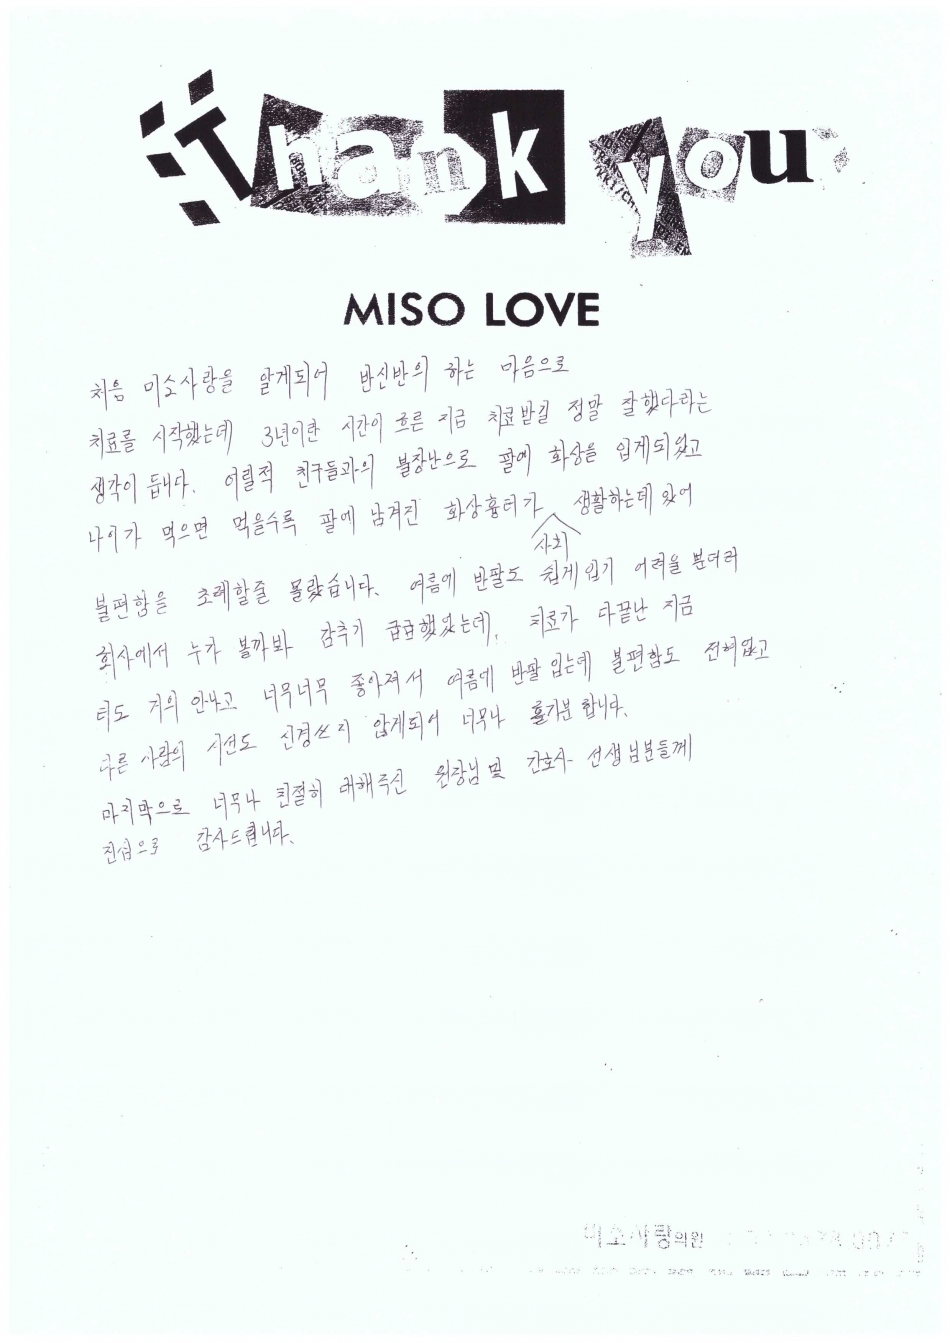 Thank you
MISO LOVE
처음 미소사랑을 알게되어 반신반의 하는 마음으로
치료를 시작했는데 3년이란 시간이 흐른 지금 치료받길 정말 잘했다라는
생각이 듭니다. 어릴적 친구들과의 불장난으로 팔에 화상을 입게되었고
나이가 먹으면 먹을수록 팔에 남겨진 화상흉터가 사회 생활하는데 있어
불편함을 초래할줄 몰랐습니다. 여름에 반팔도 쉽게 입기 어려울 뿐더러
회사에서 누가 볼까봐 감추기 급급했었는데, 치료가 다끝난 지금
티도 거의 안나고 너무너무 좋아져서 여름에 반팔 입는데 불편함도 전혀없고
다른 사람의 시선도 신경쓰지 않게되어 너무나 홀가분 합니다.
마지막으로 너무나 친절히 대해주신 원장님 및 간호사 선생님분들께
진심으로 감사드립니다.
미소사랑의원